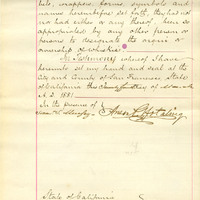 tels, wrappers, forms, symbols and
names hereinbefore set forth, they have
not had either or any thereof, been so
appropriated by any other person or
persons to designate the origin or
ownership of whiskies.
In Testimony whereof I have
hereunto set my hand and seal at the
City and County of San Francisco, State
of California this day of
A.D. 1881.
In the presence of
Anson P. Hotaling
State of California